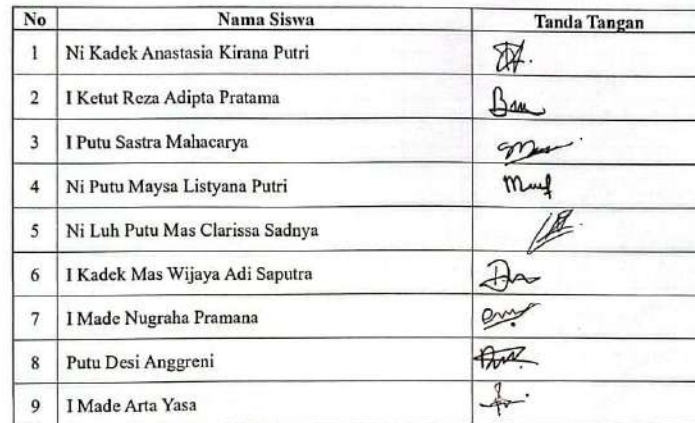 No Nama Siswa Tanda Tangan
1 Ni Kadek Anastasia Kirana Putri
2 I Ketut Reza Adipta Pratama
3 I Putu Sastra Mahacarya
4 Ni Putu Maysa Listyana Putri
5 Ni Luh Putu Mas Clarissa Sadnya
6 I Kadek Mas Wijaya Adi Saputra
7 I Made Nugraha Pramana
8 Putu Desi Anggreni
9 I Made Arta Yasa